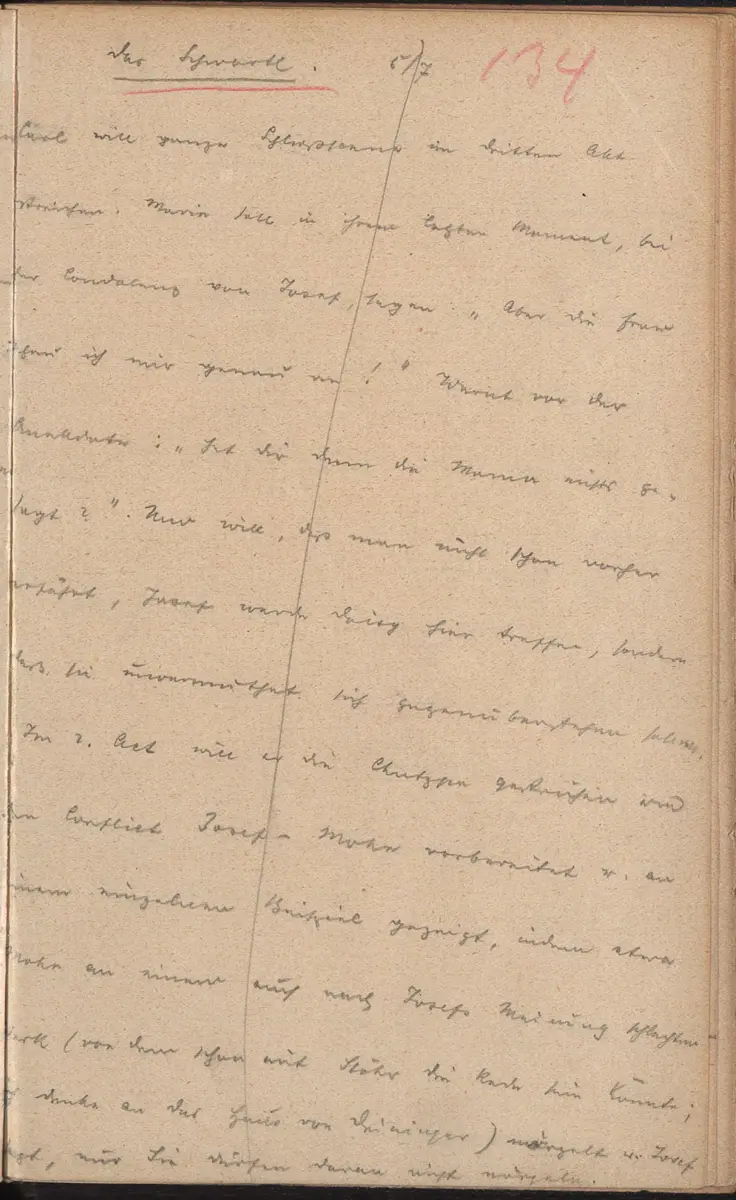 das Schwartl. 5/7 134
will ganze Schlussscene im dritten Akt
streichen. Maria soll in ihrem letzten Moment, bei
der Condolenz von Josef, sagen: „Aber die Frau
schau ich mir genau an!" Warnt vor der
Anekdote: „Hat dir denn die Mama nichts ge-
sagt?". Und will, dass man nicht schon vorher
erfährt, Josef werde Daisy hier treffen, sondern
dass sie unvermuthet sich gegenüberstehen sollen.
Im 2. Act will er die Chutzpe gestrichen und
den Conflict Josef – Mohn vorbereitet u. an
einem einzelnen Beispiel gezeigt, indem etwa
Mohn an einem auch nach Josefs Meinung schlechten
Werk (von dem schon mit Stöhr die Rede sein könnte;
ich denke an das Haus von Deininger) nörgelt u. Josef
sagt, nur Sie dürfen daran nicht nörgeln.